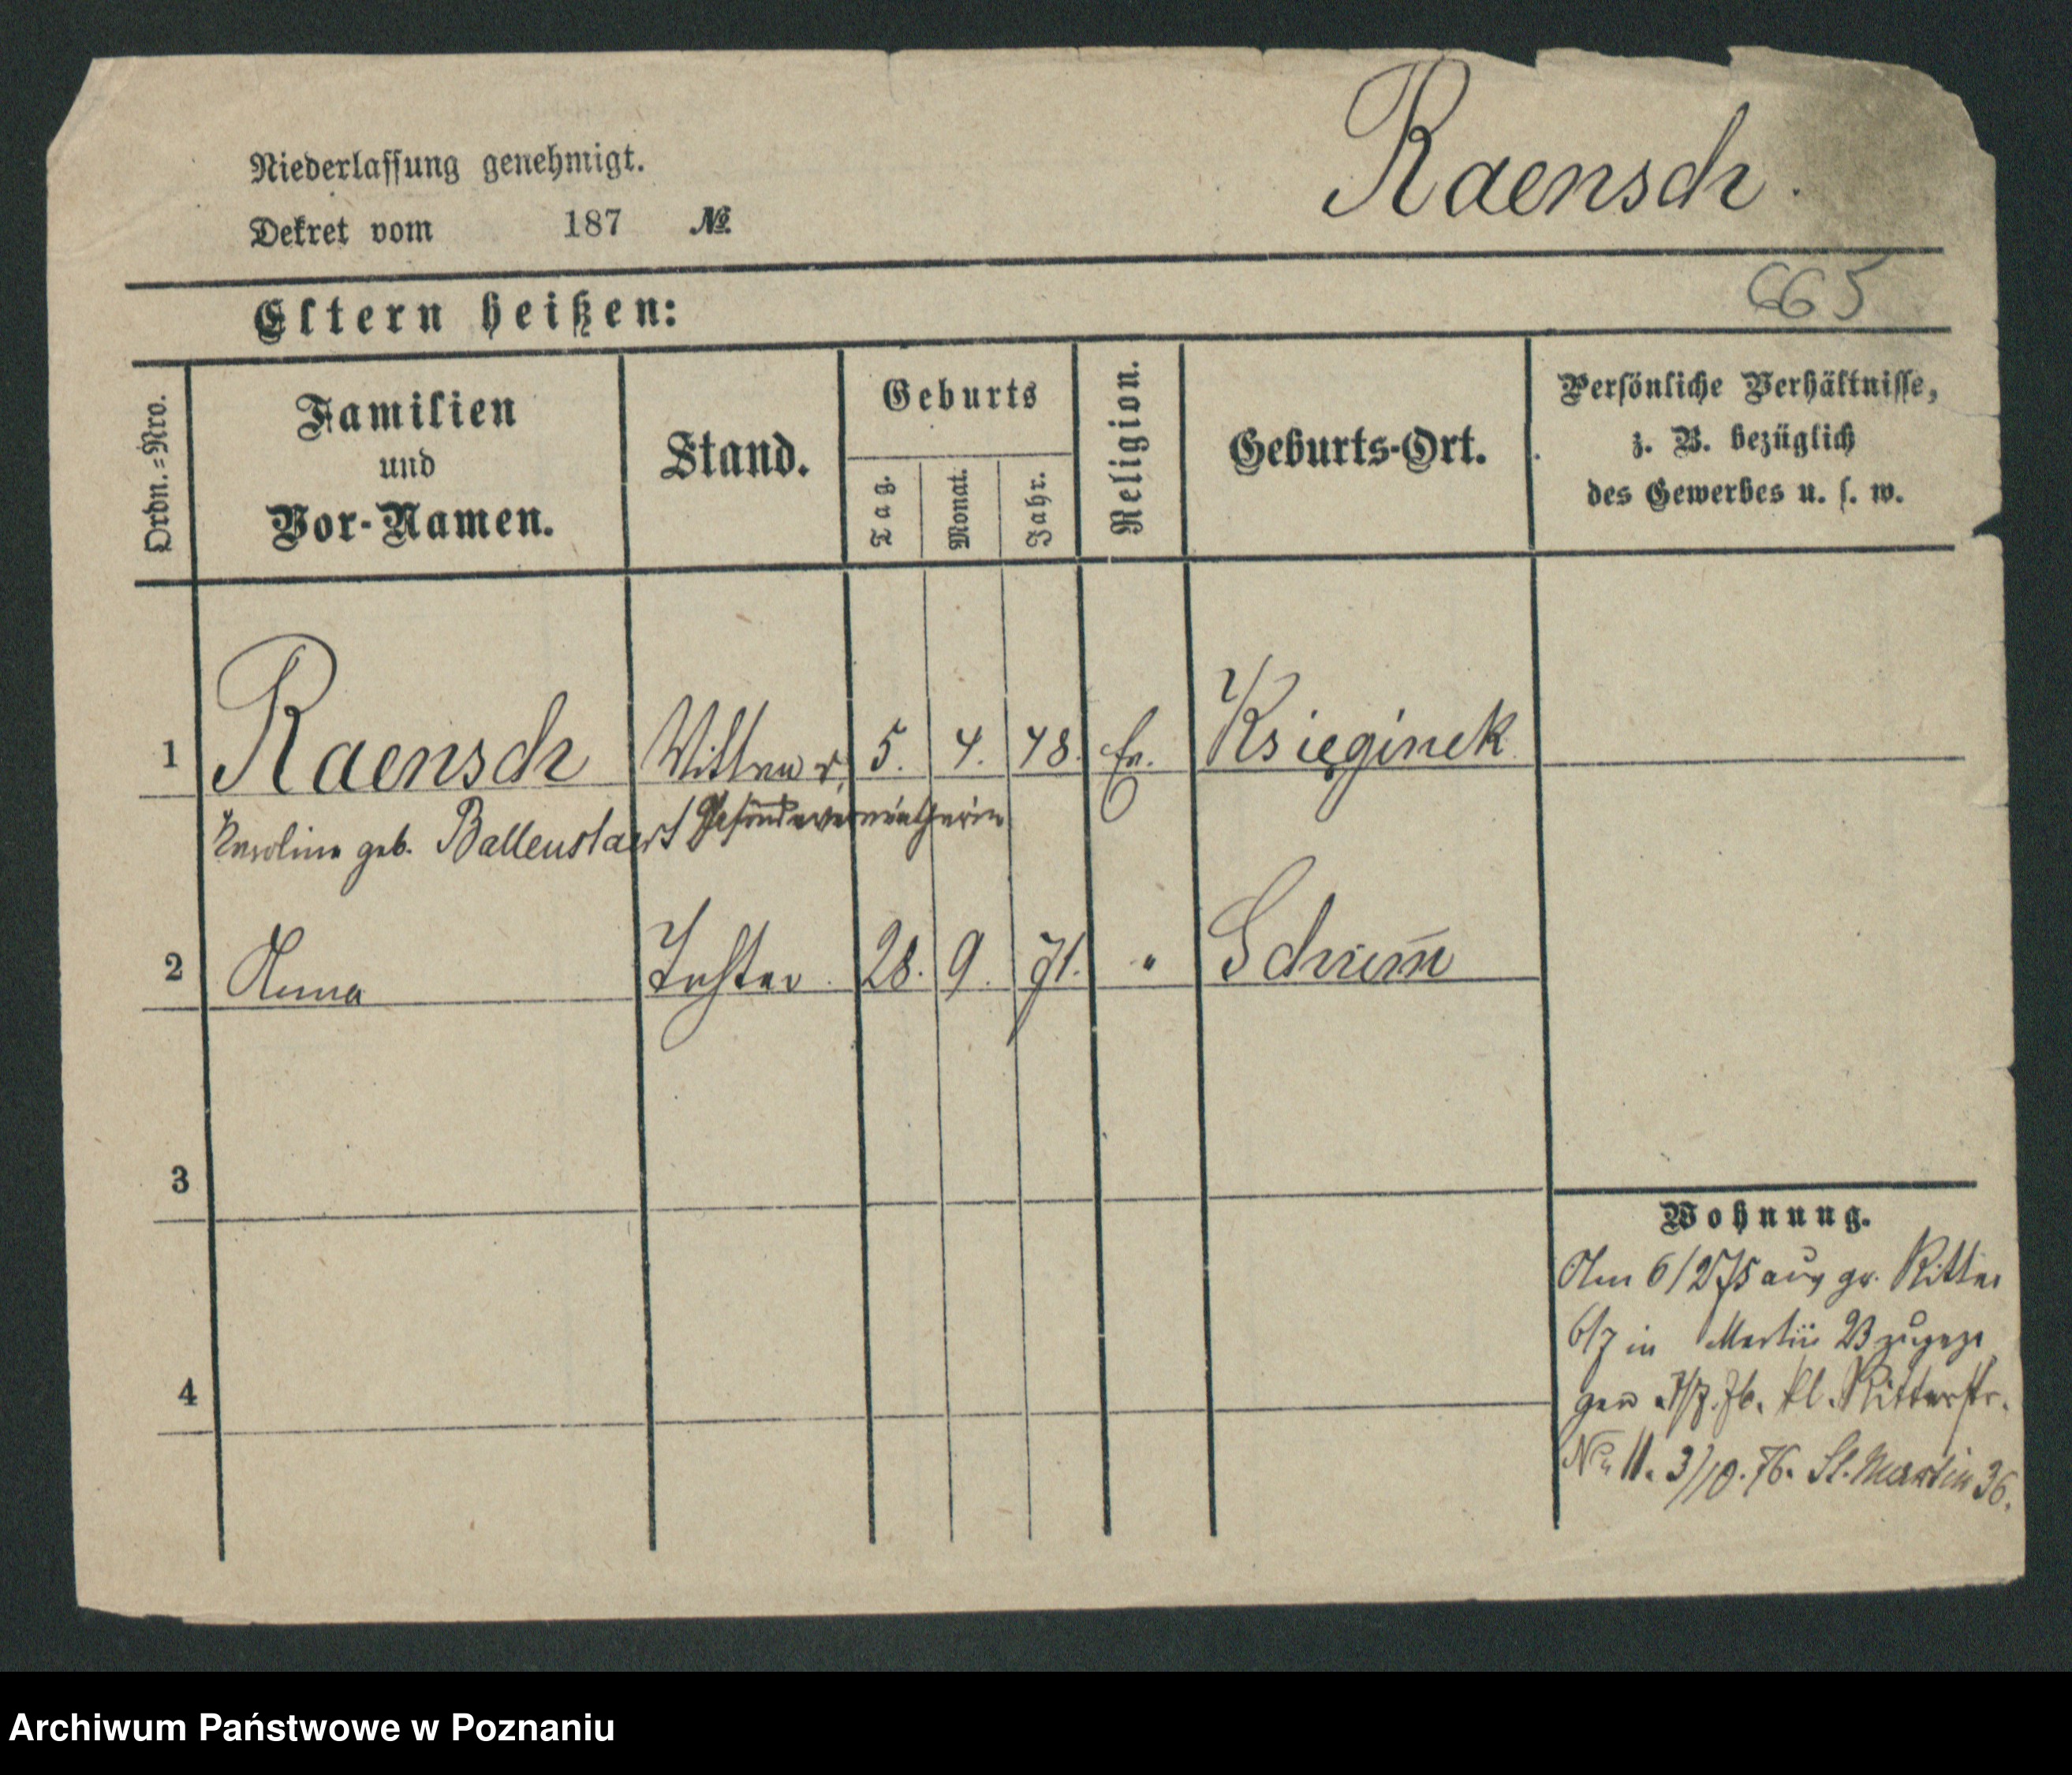 Raensch.
Niederlassung genehmigt.
Dekret vom 187 №
665
Eltern heißen:
Ordn.=Nro.
Familien
und
Vor-Namen.
Stand.
Geburts
Tag.
Monat.
Jahr.
Religion.
Geburts-Ort.
Persönliche Verhältnisse,
z. B. bezüglich
des Gewerbes u. s. w.
1 Raensch Wittwe 5. 4. 48. Ev. Księginek
Karoline geb. Ballenstaedt Gesindevermietherin
2 Anna Tochter 28. 9. 71. " Schrim̄
3
4
Wohnung.
Am 6/275 aus gr. Ritter
6/7 in Martin 23 zugezo
gen. 7/7. 76. kl. Ritterstr.
No 11. 3/10. 76. St. Martin 36.
Archiwum Państwowe w Poznaniu